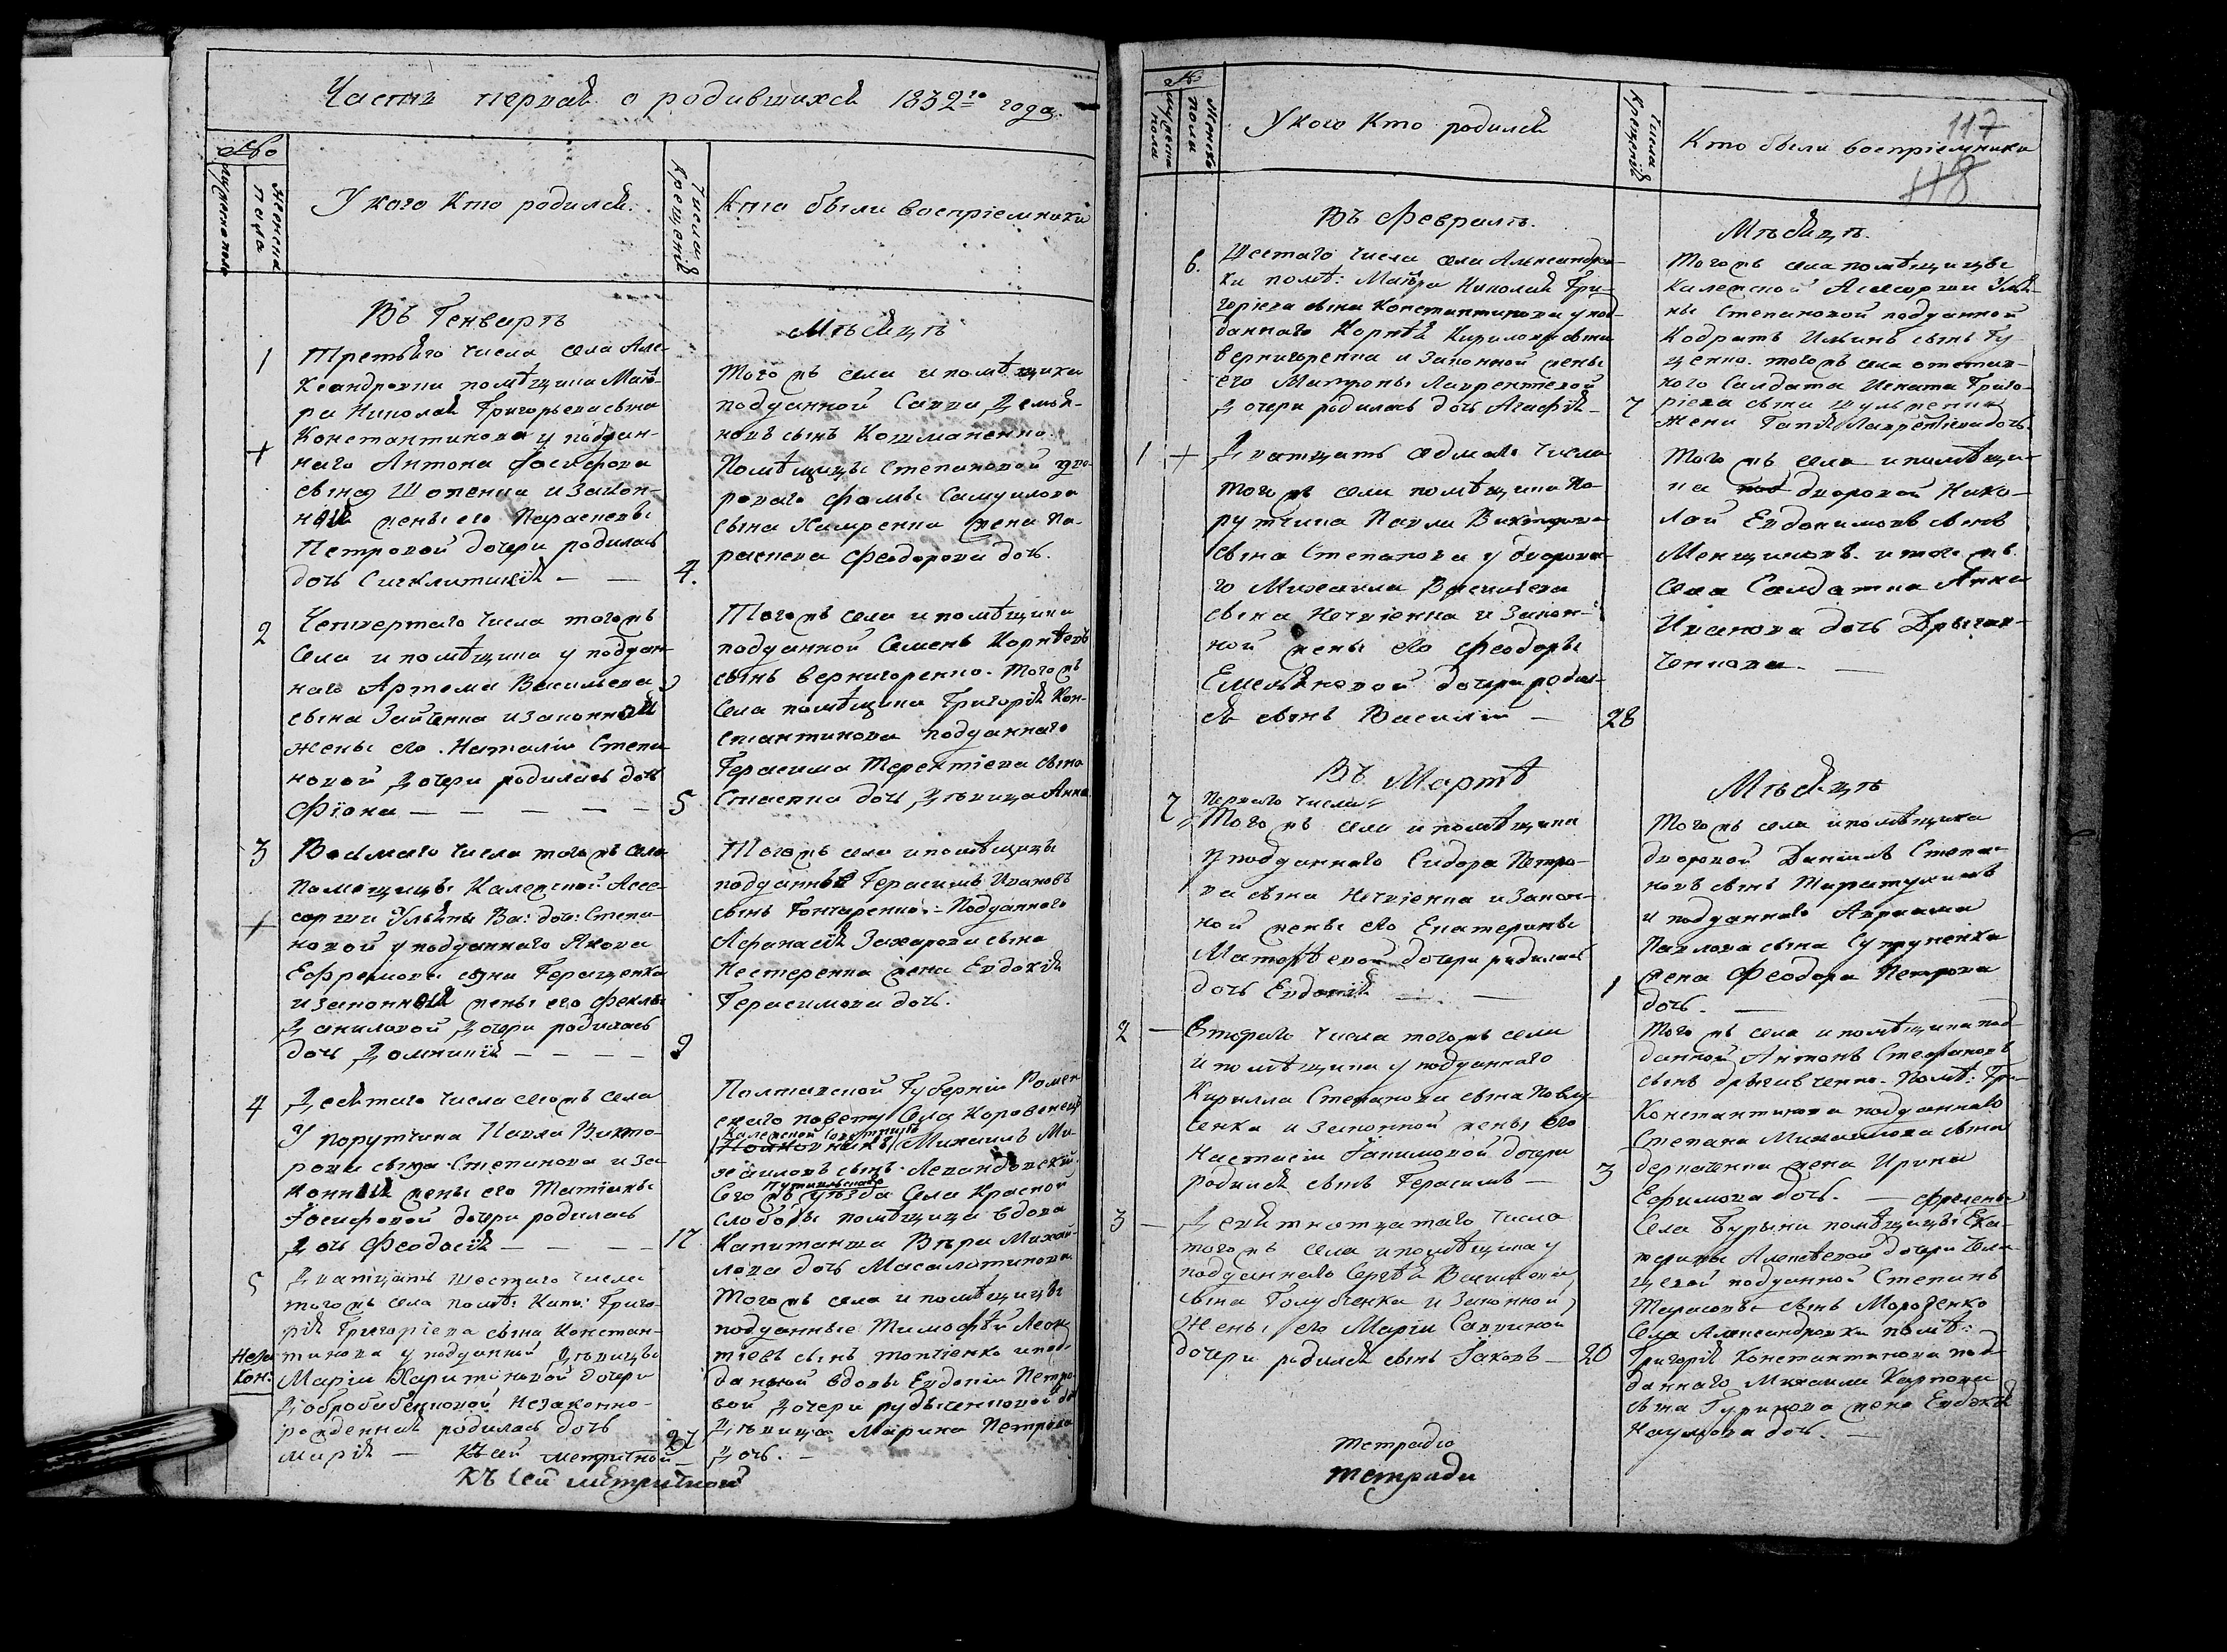 Часть первая о родившихся 1832го года.
№
мужеска пола
женска пола
У кого кто родился.
Числа крещенія
Кто были воспріемники
Въ Генварѣ
Мѣсяцѣ
1
Третьяго числа села Але-
ксандровки помѣщика Маіо-
ра Николая Григорьева сына
Константинова у поддан-
наго Антона Іосифова
сына Шопенка и закон-
ной жены его Параскевы
Петровой дочери родилась
дочь Сигклитикія —
4.
Того жъ села и помѣщика
подданной Савва Демья-
новъ сынъ Кошманенко.
Помѣщицы Степановой дво-
роваго Фомы Самуилова
сына Хамренка жена Па-
раскева Феодорова дочь.
2
Четвертаго числа того жъ
села и помѣщика у поддан-
наго Артема Васильева
сына Зайченка и законной
жены его Наталіи Степа-
новой дочери родилась дочь
Фіона — — — —
5
Того жъ села и помѣщика
подданной Семенъ Корнѣевъ
сынъ Вернигоренко. Того жъ
села помѣщика Григорія Кон-
стантинова подданнаго
Герасима Терентіева сына
дочь дѣвица Анна
3
Восьмаго числа того жъ села
помѣщицы Калежской Ассе-
сорши Ульяны Ва: доч: Степа-
новой у подданнаго Якова
Ефремова сына Геращенка
и законной жены его Феклы
Даниловой дочери родилась
дочь Домникія — — — —
9
Того жъ села и помѣщицы
подданные Герасимъ Ивановъ
сынъ Гончаренко. Подданного
Афанасія Захарова сына
Нестеренка жена Евдокія
Герасимова дочь.
4
Десятаго числа сего жъ села
у порутчика Павла Викто-
рова сына Степанова и за-
конной жены его Татіаны
Іосифовой дочери родилась
дочь Феодосія — — — —
17
Полтавской Губерніи Ромен-
скаго повету села Коровенецъ
Калежской Совѣтникъ
Михаилъ Ми-
хаиловъ сынъ
Путивльскаго
Сего жъ уѣзда села Красной
слободы помѣщица вдова
Капитанша Вѣра Михай-
лова дочь Масалитинова
5
Двадцать шестаго числа
того жъ села помѣ: Капи: Григо-
рія Григоріева сына Констан-
тинова у подданной дѣвицы
Маріи Харитоновой дочери
незаконно-
рожденная родилась дочь
Марія —
Неза
кон:
27
Того жъ села и помѣщицы
подданные Тимофѣй Леон-
тіевъ сынъ Топчіенко и под-
данной вдовы Евдокіи Петро-
вой дочери
дѣвица Марина Петрова
дочь. —
Къ сей метричной
Къ сей метричной
№
мужеска пола
женска пола
У кого кто родился
Числа крещенія
Кто были воспріемники
117
118
Въ Февралѣ.
Мѣсяцѣ.
6.
Шестаго числа села Александров-
ки помѣ: Маіора Николая Гри-
горіева сына Константинова у под-
даннаго Корнѣя Кирилова сына
Вернигоренка и законной жены
его Матроны Лаврентіевой
дочери родилась дочь Агафія —
7
Того жъ села помѣщицы
Калежской Ассесорши Улья-
ны Степановой подданной
Кодратъ Ильинъ сынъ Гу-
ценко. того жъ села отстав-
ного Солдата Игната Григо-
ріева сына Шульженка
жена Лаврентіева дочь.
1
Двадцать седмаго числа
того жъ села помѣщика По-
рутчика Павла Викторова
сына Степанова у дворова-
го Михаила Васильева
сына Нечвіенка и закон-
ной жены его Феодоры
Емельяновой дочери родил-
ся сынъ Василій —
28
Того жъ села и помѣщи-
ка дворовой Нико-
лай Евдокимовъ сынъ
Менщиковъ. и того жъ
села Солдатка Анна
Иванова дочь Дрыган-
ченкова. —
Въ Мартѣ
Мѣсяцѣ
7
Перваго числа
Того жъ села и помѣщика
у подданнаго Сидора Петро-
ва сына Нечвіенка и закон-
ной жены его Екатерины
Матѳѣевой дочери родилась
дочь Евдокія — —
1
Того жъ села и помѣщика
дворовой Даніилъ Степа-
новъ сынъ
и подданнаго Авраама
Павлова сына Супруненка
жена Феодора Петрова
дочь. —
2 —
Втораго числа того жъ села
и помѣщика у подданнаго
Кирилла Степанова сына
и законной жены его
Настасіи Іакимовой дочери
родился сынъ Герасимъ —
3
Того жъ села и помѣщика под-
данной Антонъ Стефановъ
сынъ Помѣ: Гри-
Константинова подданнаго
Степана Михаилова сына
жена Ирина
Ефимова дочь. —
3 —
Девятнатцатаго числа
того жъ села и помѣщика у
подданнаго Сергѣя Васильева
сына Голубченка и законной
жены его Маріи Саввиной
дочери родился сынъ Іаковъ —
20
Села Бурыни помѣщицы Ека-
терины Алексѣевой дочери
подданной Степанъ
Тарасовъ сынъ Морозенко
Села Александровки помѣ:
Григорія Константинова под-
даннаго Михаила Карпова
сына Гуринова жена Евдокія
Наумова дочь. —
тетради
тетради